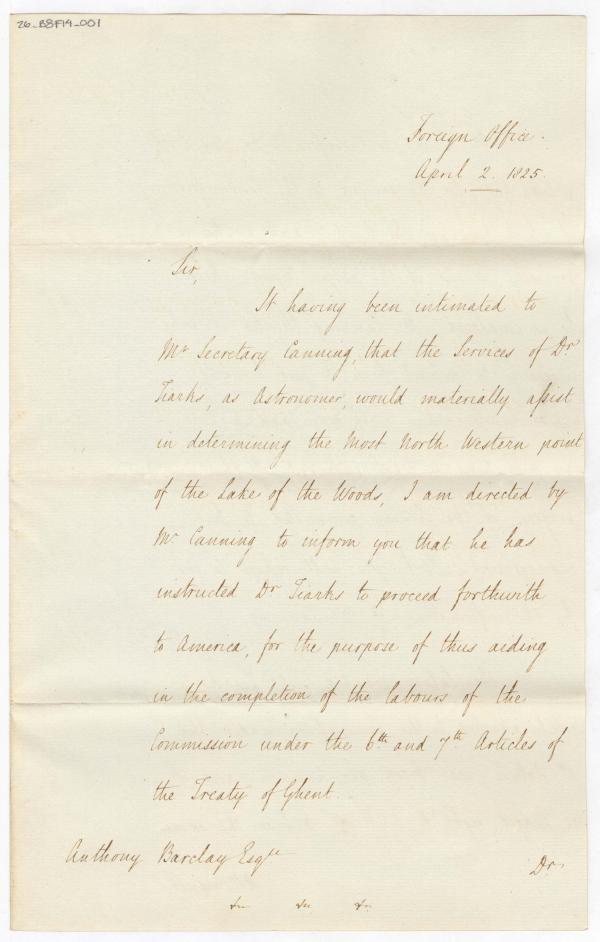 26_B8F14_001
Foreign Office.
April 2. 1825.
Sir,
It having been intimated to
Mr Secretary Canning, that the Services of Dr
Tiarks, as Astronomer, would materially assist
in determining the Most North Western point
of the Lake of the Woods, I am directed by
Mr Canning to inform you that he has
instructed Dr Tiarks to proceed forthwith
to America, for the purpose of thus aiding
in the completion of the labours of the
Commission under the 6th and 7th Articles of
the Treaty of Ghent.
Anthony Barclay Esqre
Dr
&c &c &c